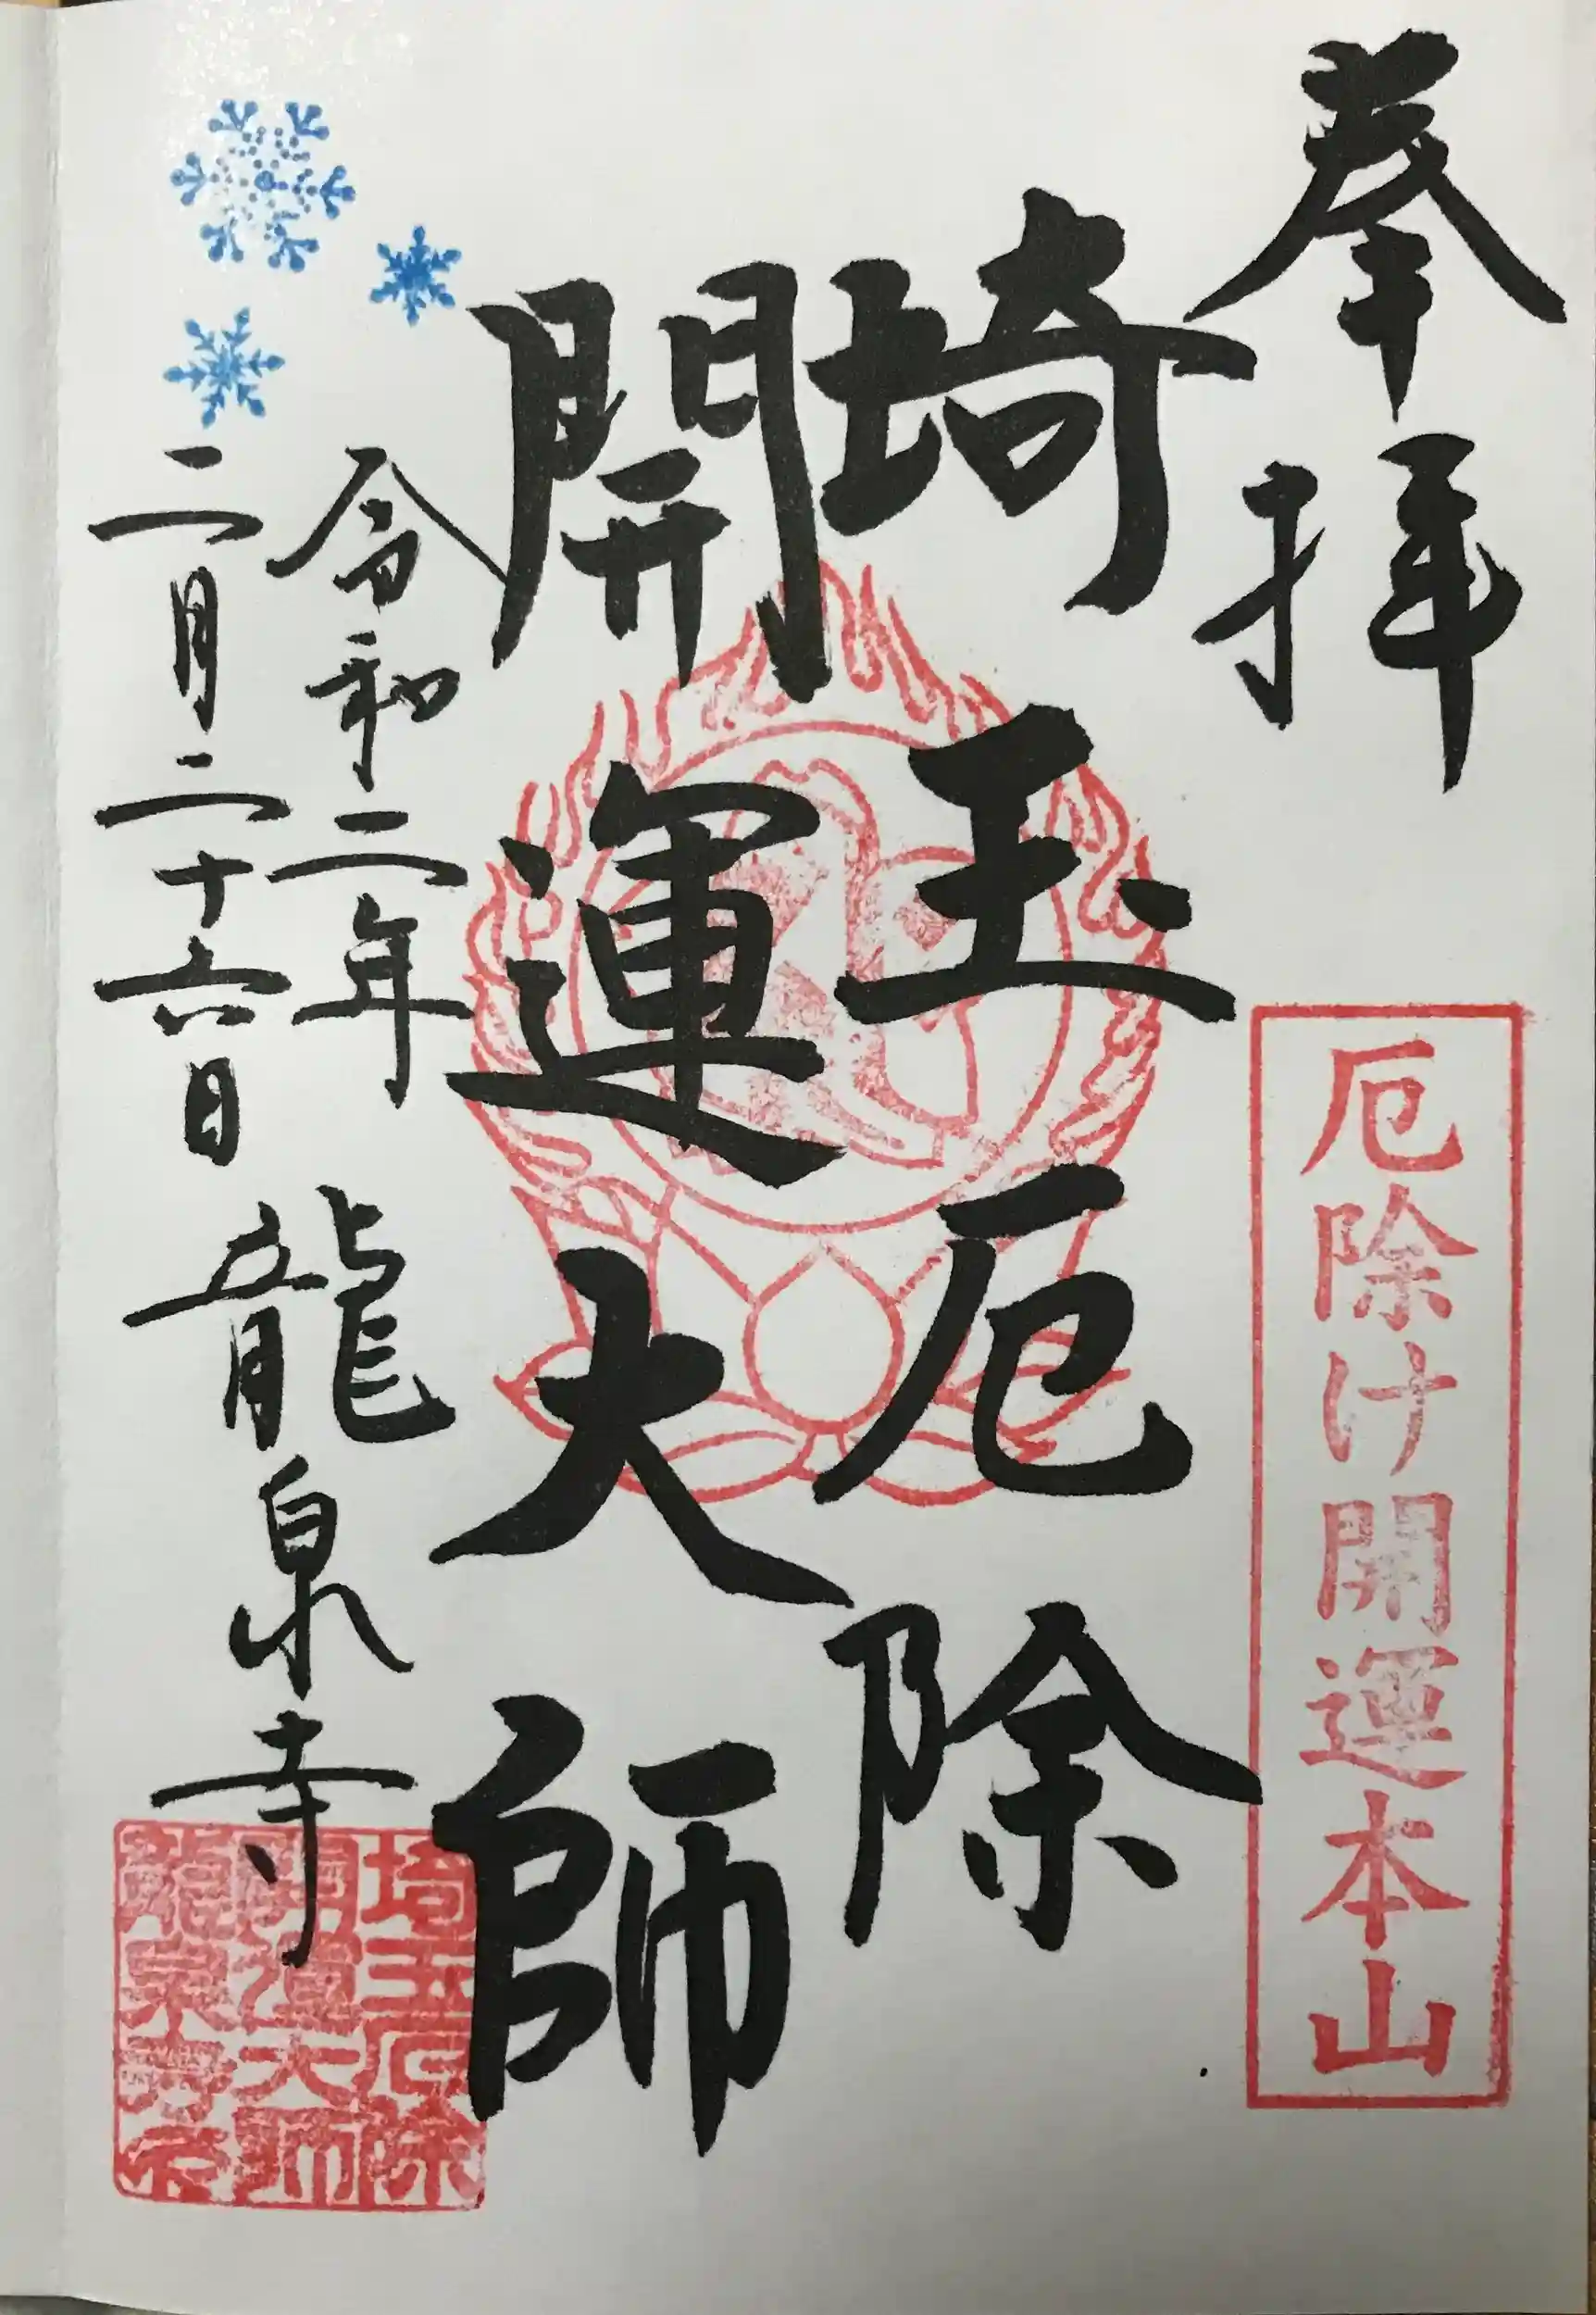 奉拝
厄除け開運本山
埼玉厄除
開運大師
令和二年
二月二十六日
龍泉寺
埼玉厄除
開運大師
龍泉寺